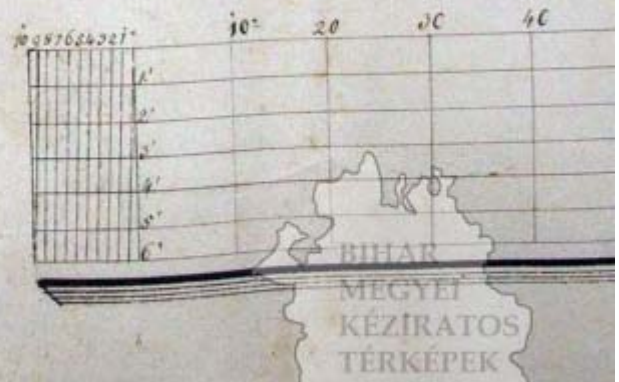 10 9 8 7 6 5 4 3 2 1° 10° 20 30 40
1'
2'
3'
4'
5'
6'
BIHAR
MEGYEI
KÉZIRATOS
TÉRKÉPEK